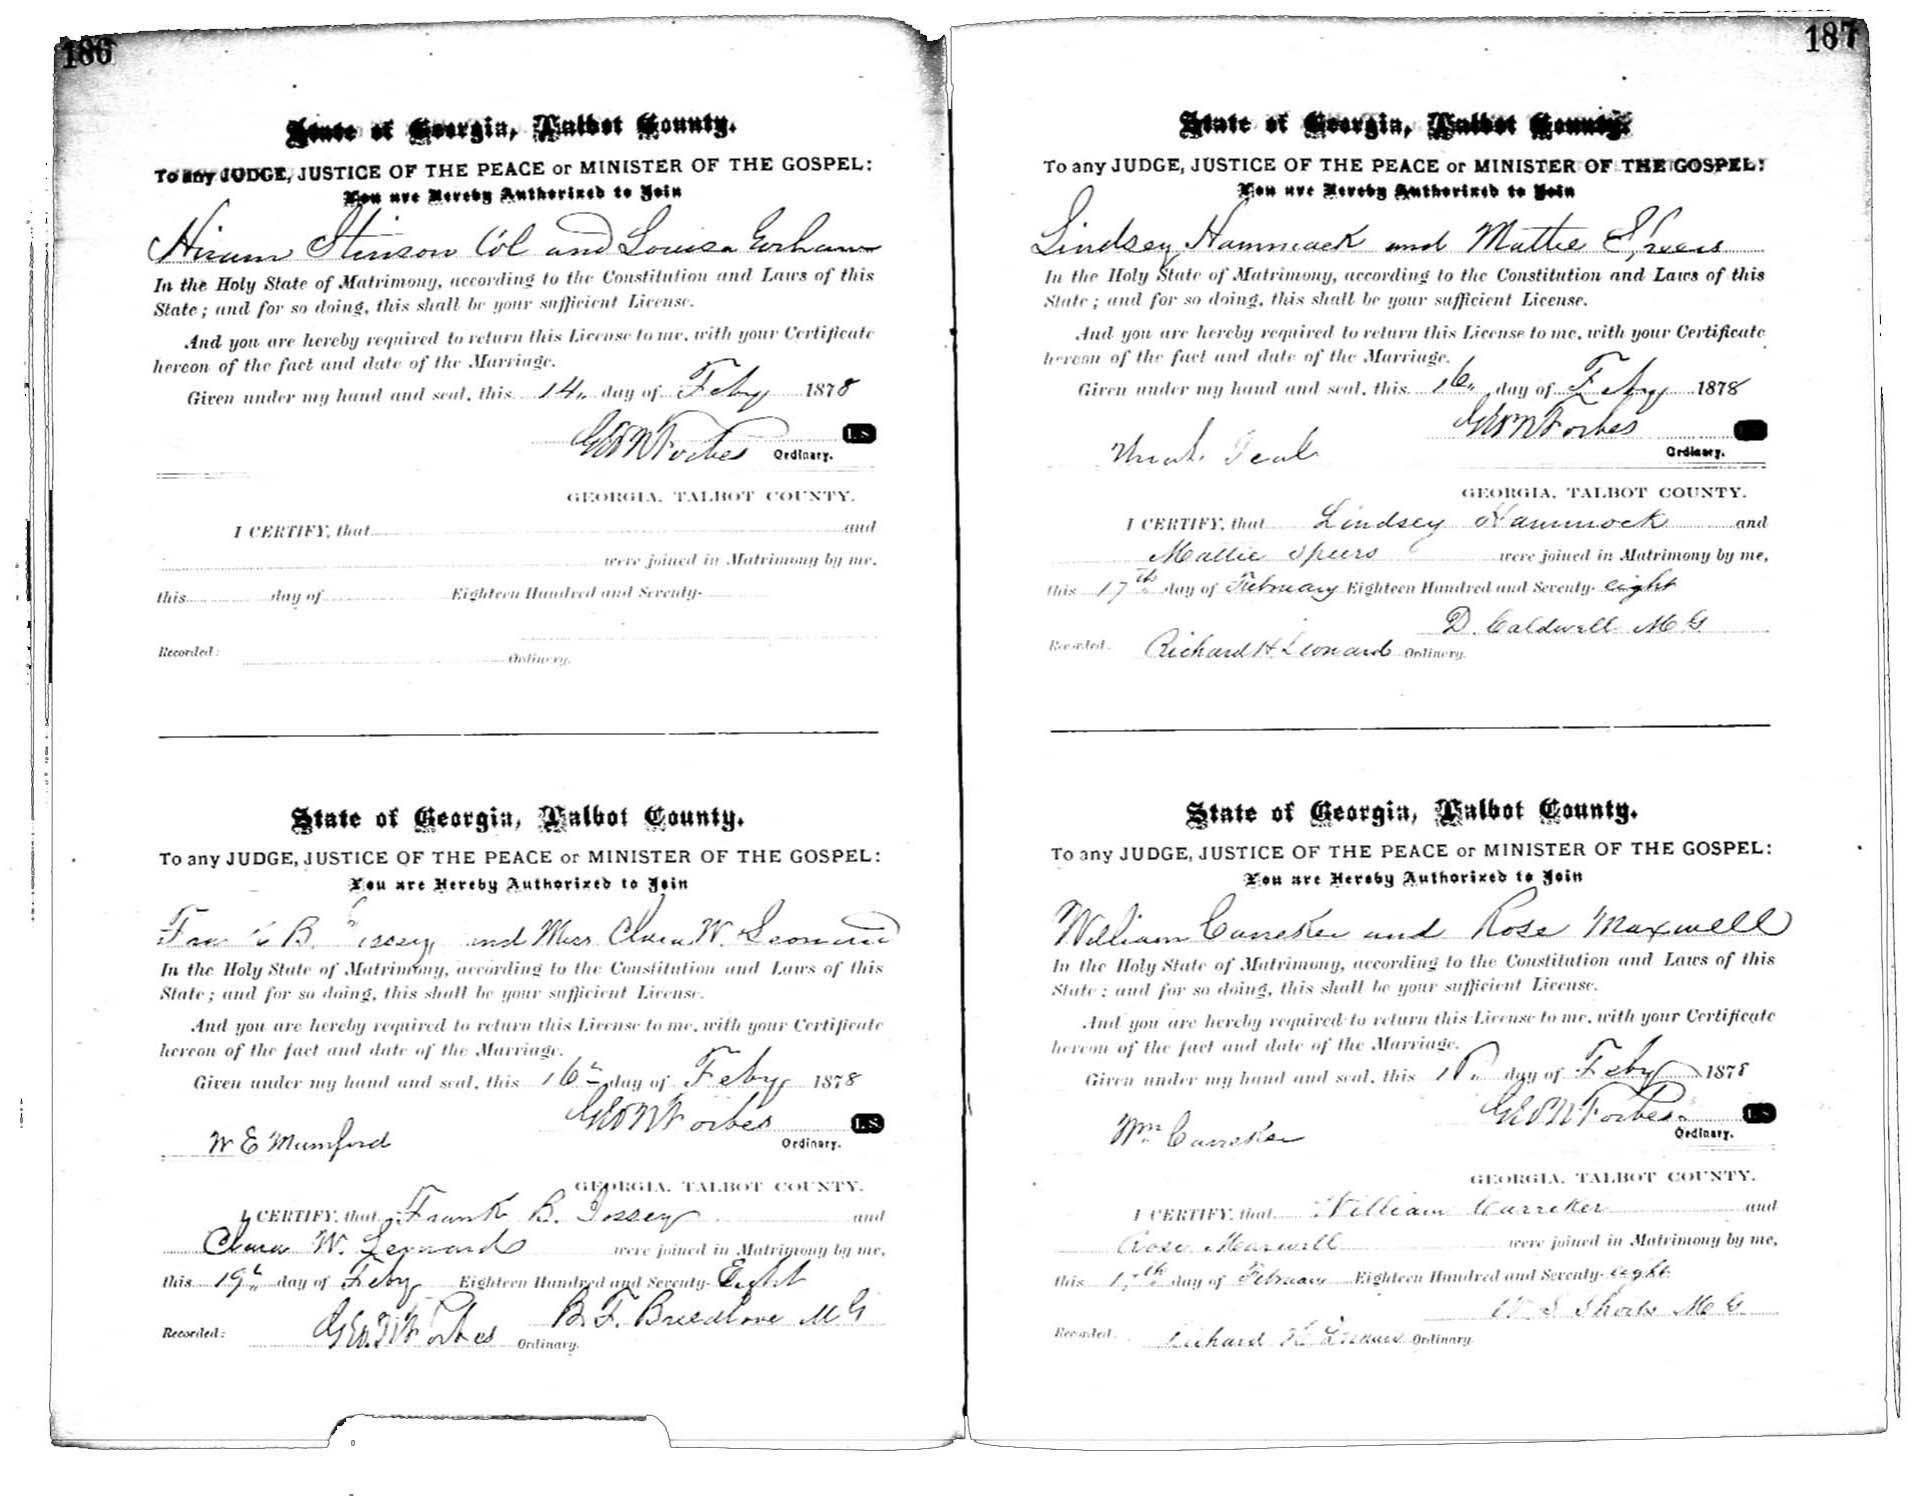 186
State of Georgia, Talbot County.
To any JUDGE, JUSTICE OF THE PEACE or MINISTER OF THE GOSPEL:
You are Hereby Authorized to Join
Hiram Stinson Col and Louisa Gorham
In the Holy State of Matrimony, according to the Constitution and Laws of this
State; and for so doing, this shall be your sufficient License.
And you are hereby required to return this License to me, with your Certificate
hereon of the fact and date of the Marriage.
Given under my hand and seal, this 14 day of Feby 1878
Geo N Forbes L.S.
Ordinary.
GEORGIA, TALBOT COUNTY.
I CERTIFY, that and
were joined in Matrimony by me,
this day of Eighteen Hundred and Seventy-
Recorded: Ordinary.
State of Georgia, Talbot County.
To any JUDGE, JUSTICE OF THE PEACE or MINISTER OF THE GOSPEL:
You are Hereby Authorized to Join
B. and Miss Clara W. Leonard
In the Holy State of Matrimony, according to the Constitution and Laws of this
State; and for so doing, this shall be your sufficient License.
And you are hereby required to return this License to me, with your Certificate
hereon of the fact and date of the Marriage.
Given under my hand and seal, this 16 day of Feby 1878
Geo N Forbes L.S.
W E Mumford Ordinary.
GEORGIA, TALBOT COUNTY.
I CERTIFY, that Frank B. Gossey and
Clara W. Leonard were joined in Matrimony by me,
this 19 day of Feby Eighteen Hundred and Seventy-Eight
B. F. Breedlove M G
Recorded: Geo. N Forbes Ordinary.
187
State of Georgia, Talbot County.
To any JUDGE, JUSTICE OF THE PEACE or MINISTER OF THE GOSPEL:
You are Hereby Authorized to Join
Lindsey Hammock and Mattie Speers
In the Holy State of Matrimony, according to the Constitution and Laws of this
State; and for so doing, this shall be your sufficient License.
And you are hereby required to return this License to me, with your Certificate
hereon of the fact and date of the Marriage.
Given under my hand and seal, this 16 day of Feby 1878
Geo N Forbes
Ordinary.
GEORGIA, TALBOT COUNTY.
I CERTIFY, that Lindsey Hammock and
Mattie Speers were joined in Matrimony by me,
this 17th day of February Eighteen Hundred and Seventy-eight
D. Caldwell M G
Recorded: Richard H Leonard Ordinary.
State of Georgia, Talbot County.
To any JUDGE, JUSTICE OF THE PEACE or MINISTER OF THE GOSPEL:
You are Hereby Authorized to Join
William Carreker and Rose Maxwell
In the Holy State of Matrimony, according to the Constitution and Laws of this
State; and for so doing, this shall be your sufficient License.
And you are hereby required to return this License to me, with your Certificate
hereon of the fact and date of the Marriage.
Given under my hand and seal, this day of Feby 1878
Geo N Forbes L.S.
Wm Carreker Ordinary.
GEORGIA, TALBOT COUNTY.
I CERTIFY, that William Carreker and
Rose Maxwell were joined in Matrimony by me,
this day of February Eighteen Hundred and Seventy-eight
W. S. Shorts M G
Recorded: Richard H Leonard Ordinary.